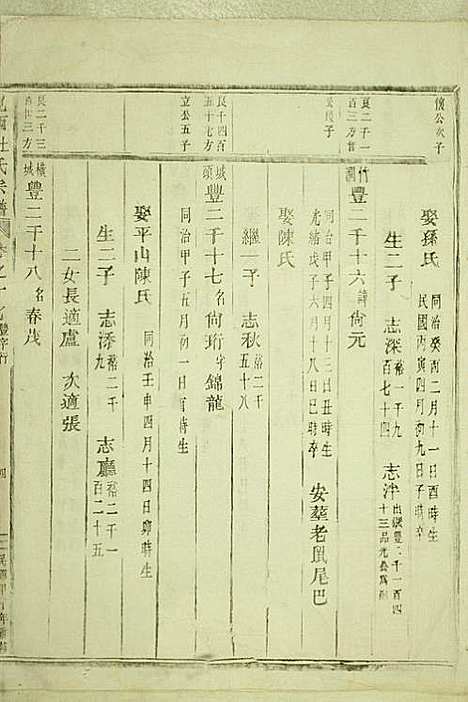 懷公次子
娶孫氏 同治癸酉二月十一日酉時生 民國丙寅四月初九日子時卒
生二子 志深 裕一千九百七十四 志泮 出繼豐二千一百四十三
豐二千十六 諱尙元
同治甲子四月十三日丑時生
光緒戊子六月十八日巳時卒 安葬老鼠尾巴
娶陳氏
繼一子 志秋 裕二千五十八
良千四百五十七方
立公五子
城頭 豐二千十七 名尙珩 字錦龍
同治甲子五月初一日 時生
娶平山陳氏 同治壬申四月十四日卯時生
生二子 志添 裕二千九 志廳 裕二千一百二十五
二女長適盧 次適張
良二千三百四三方
橫城 豐二千十八 名春茂
杜氏宗譜
豐字行
四